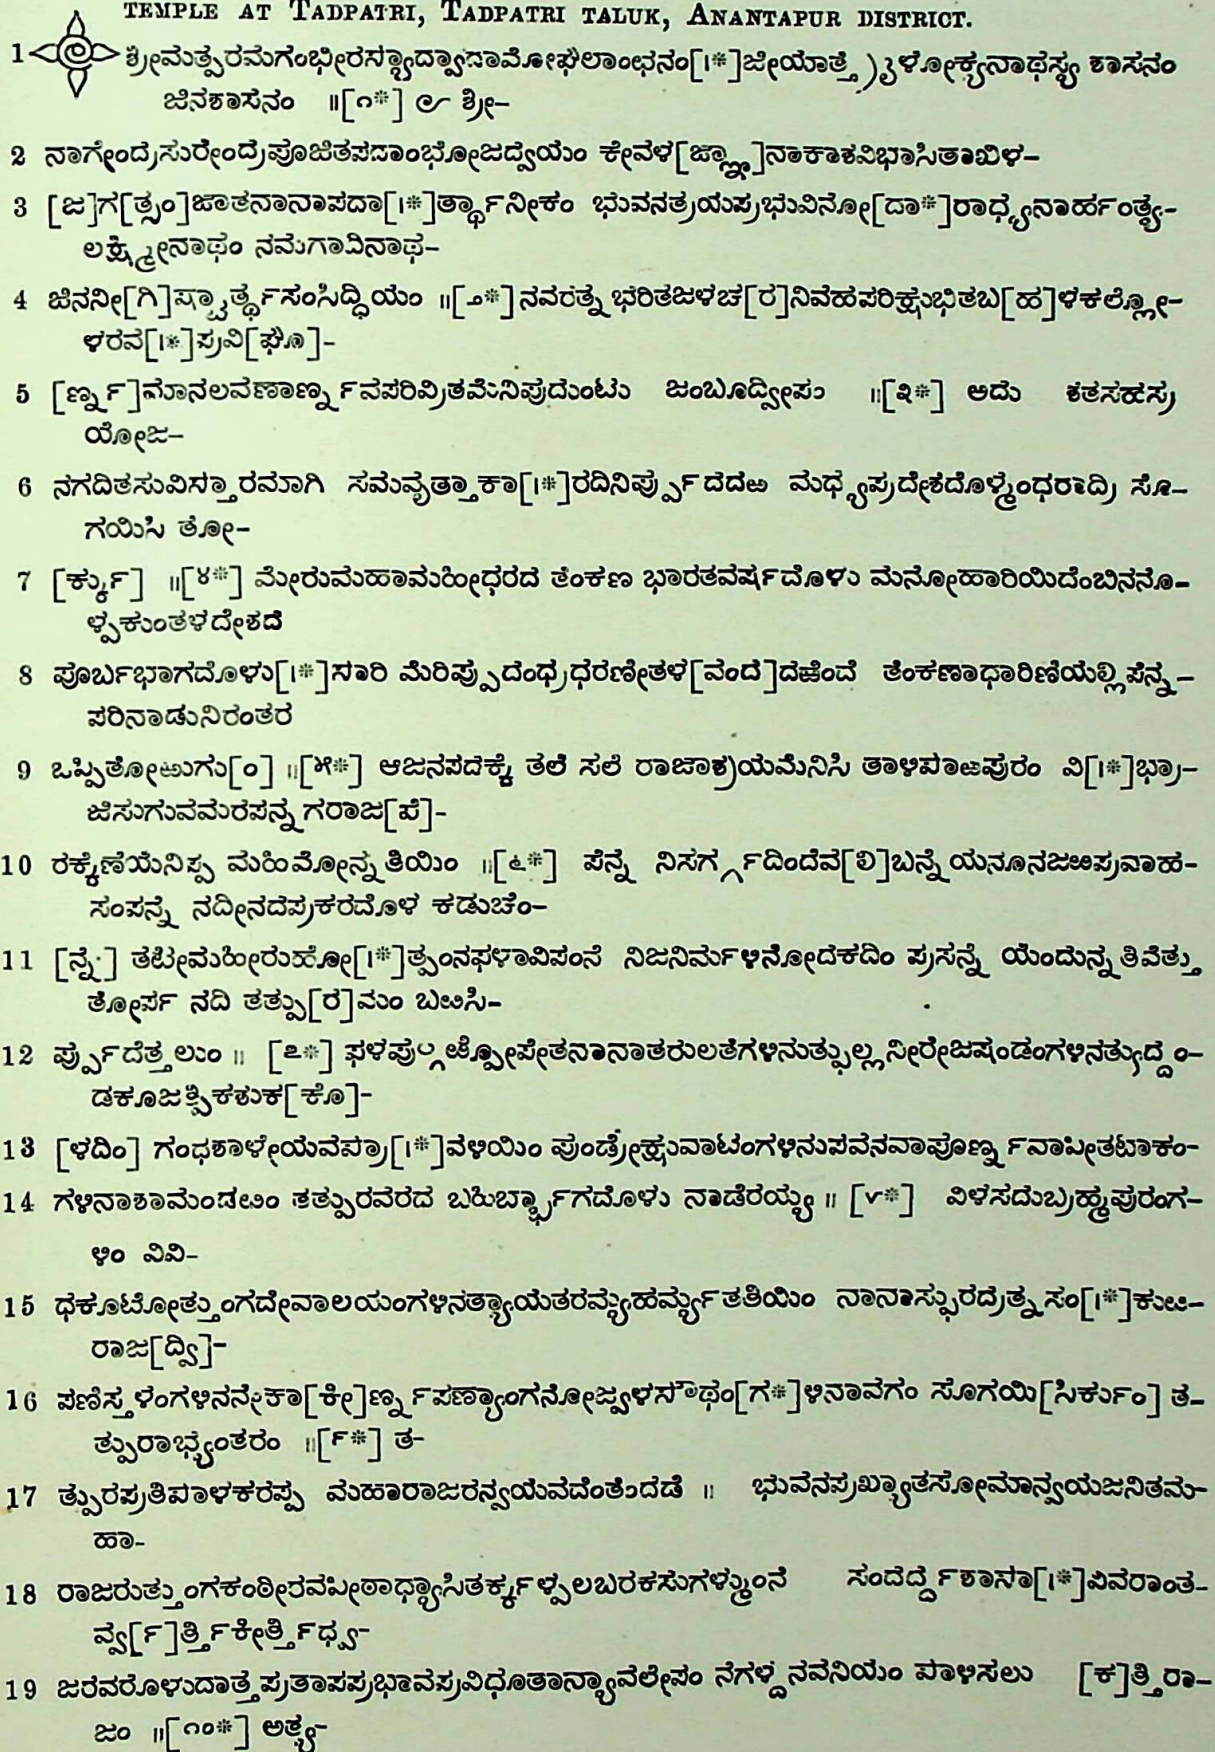 TEMPLE AT TADPATRI, TADPATRI TALUK, ANANTAPUR DISTRICT.
1 ಶ್ರೀಮತ್ಪರಮಗಂಭೀರಸ್ಯಾದ್ವಾದಾಮೋಘಲಾಂಛನಂ[।*]ಜೀಯಾತ್ತ್ರೈಳೋಕ್ಯನಾಥಸ್ಯ ಶಾಸನಂ
ಜಿನಶಾಸನಂ ॥[೧*] ಶ್ರೀ-
2 ನಾಗೇಂದ್ರಸುರೇಂದ್ರಪೂಜಿತಪದಾಂಭೋಜದ್ವಯಂ ಕೇವಳ[ಜ್ಞಾ]ನಾಕಾಶವಿಭಾಸಿತಾಖಿಳ-
3 [ಜ]ಗ[ತ್ಸಂ]ಜಾತನಾನಾಪದಾ[।*]ರ್ತ್ಥಾನೀಕಂ ಭುವನತ್ರಯಪ್ರಭುವಿನೋ[ದಾ*]ರಾಧ್ಯನಾರ್ಹಂತ್ಯ-
ಲಕ್ಷ್ಮೀನಾಥಂ ನಮಗಾದಿನಾಥ-
4 ಜಿನನೀ[ಗಿ]ಷ್ಟಾರ್ತ್ಥಸಂಸಿದ್ಧಿಯಂ ॥[೨*] ನವರತ್ನಭರಿತಜಳಚ[ರ]ನಿವಹಪರಿಕ್ಷುಭಿತಬ[ಹ]ಳಕಲ್ಲೋ-
ಳರವ[।*]ಪ್ರವಿ[ಘೂ]-
5 [ರ್ಣ್ನ]ಮಾನಲವಣಾರ್ಣ್ನವಪರಿವ್ರಿತಮೆನಿಪುದುಂಟು ಜಂಬೂದ್ವೀಪಂ ॥[೩*] ಅದು ಶತಸಹಸ್ರ
ಯೋಜ-
6 ನಗದಿತಸುವಿಸ್ತಾರಮಾಗಿ ಸಮವೃತ್ತಾಕಾ[।*]ರದಿನಿರ್ಪ್ಪುದದಱ ಮಧ್ಯಪ್ರದೇಶದೊಳ್ಮಂಧರಾದ್ರಿ ಸೊ-
ಗಯಿಸಿ ತೋ-
7 [ರ್ಕ್ಕು] ॥[೪*] ಮೇರುಮಹಾಮಹೀಧರದ ತೆಂಕಣ ಭಾರತವರ್ಷದೊಳು ಮನೋಹಾರಿಯಿದೆಂಬಿನನೊ-
ಳ್ಪಕುಂತಳದೇಶದ
8 ಪೂರ್ಬಭಾಗದೊಳು[।*]ಸಾರಿ ಮೆರಿಪ್ಪುದಂಧ್ರಧರಣೀತಳ[ವಂದ]ದಱೆಂದೆ ತೆಂಕಣಾಧಾರಿಣಿಯಲ್ಲಿ ಪೆನ್ನ-
ಪರಿನಾಡುನಿರಂತರ
9 ಒಪ್ಪಿತೋಱುಗು[ಂ] ॥[೫*] ಆಜನಪದಕ್ಕೆ ತಲೆ ಸಲೆ ರಾಜಾಶ್ರಯಮೆನಿಸಿ ತಾೞಪಾಱಪುರಂ ವಿ[।*]ಭ್ರಾ-
ಜಿಸುಗುವಮರಪನ್ನಗರಾಜ[ಪೆ]-
10 ರಕ್ಕೆಣೆಯೆನಿಪ್ಪ ಮಹಿಮೋನ್ನತಿಯಿಂ ॥[೬*] ಪೆನ್ನೆ ನಿಸರ್ಗ್ಗದಿಂದೆವ[ಲಿ]ಬನ್ನೆಯನೂನಜಱಪ್ರವಾಹ-
ಸಂಪನ್ನೆ ನದೀನದಪ್ರಕರದೊಳ ಕಡುಚೆಂ-
11 [ನ್ನೆ] ತಟೀಮಹೀರುಹೋ[।*]ತ್ಪಂನಫಳಾವಿಪಂನೆ ನಿಜನಿರ್ಮಳಿನೋದಕದಿಂ ಪ್ರಸನ್ನೆ ಯೆಂದುನ್ನತಿವೆತ್ತು
ತೋರ್ಪ ನದಿ ತತ್ಪು[ರ]ಮಂ ಬಳಸಿ-
12 ರ್ಪ್ಪುದೆತ್ತಲುಂ ॥ [೭*] ಫಳಪುಲ್ಗಱ್ಪೋಪೇತನಾನಾತರುಲತೆಗಳಿನುತ್ಫುಲ್ಲನೀರೇಜಷಂಡಂಗಳಿನತ್ಯುದ್ದಂ-
ಡಕೂಜತ್ಪಿಕಶುಕ[ಕೊ]-
13 [ಳದಿಂ] ಗಂಧಶಾಳೇಯವಪ್ರಾ[।*]ವಳಿಯಿಂ ಪುಂಡ್ರೇಕ್ಷುವಾಟಂಗಳಿನುಪವನವಾಪೂರ್ಣ್ನವಾಪೀತಟಾಕಂ-
14 ಗಳಿನಾಶಾಮಂಡಳಂ ತತ್ಪುರವರದ ಬಹಿರ್ಬ್ಭಾಗದೊಳು ನಾಡೆರಯ್ಯ ॥ [೮*] ವಿಳಸದುಬ್ರಹ್ಮಪುರಂಗ-
ಳಿಂ ವಿವಿ-
15 ಧಕೂಟೋತ್ತುಂಗದೇವಾಲಯಂಗಳಿನತ್ಯಾಯತರಮ್ಯಹರ್ಮ್ಯತತಿಯಿಂ ನಾನಾಸ್ಫುರದ್ರತ್ನಸಂ[।*]ಕುಳ-
ರಾಜ[ದ್ವಿ]-
16 ಪಣಿಸ್ತಳಂಗಳಿನನೇಕಾ[ಕೀ]ರ್ಣ್ನಪಣ್ಯಾಂಗನೋಜ್ವಳಸೌಥಂ[ಗ*]ಳಿನಾವಗಂ ಸೊಗಯಿ[ಸಿರ್ಕುಂ] ತ-
ತ್ಪುರಾಭ್ಯಂತರಂ ॥[೯*] ತ-
17 ತ್ಪುರಪ್ರತಿಪಾಳಕರಪ್ಪ ಮಹಾರಾಜರನ್ವಯವದೆಂತೆಂದಡೆ ॥ ಭುವನಪ್ರಖ್ಯಾತಸೋಮಾನ್ವಯಜನಿತಮ-
ಹಾ-
18 ರಾಜರುತ್ತುಂಗಕಂಠೀರವಪೀಠಾಧ್ಯಾಸಿತರ್ಕ್ಕಳ್ಪಲಬರಕಸುಗಳ್ಮುಂನೆ ಸಂದರ್ದ್ದೆಶಾಸಾ[।*]ವಿವರಾಂತ-
ವ್ವ[ರ್]ರ್ತ್ತಿಕೀರ್ತ್ತಿಧ್ವ-
19 ಜರವರೊಳುದಾತ್ತಪ್ರತಾಪಪ್ರಭಾವಪ್ರವಿಧೂತಾನ್ಯಾವಲೇಪಂ ನೆಗಳ್ದನವನಿಯಂ ಪಾಳಿಸಲು [ಕ]ತ್ತಿರಾ-
ಜಂ ॥[೧೦*] ಅತ್ಯ-